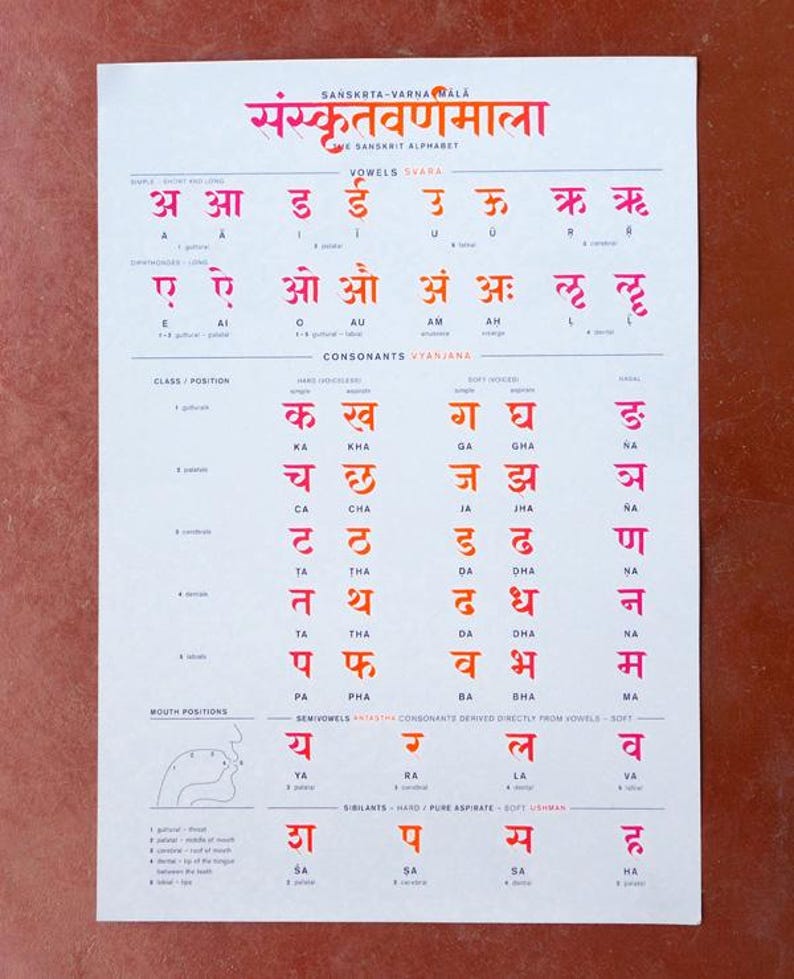 SAṄSKṚTA–VARṆA MĀLĀ
संस्कृतवर्णमाला
THE SANSKRIT ALPHABET
VOWELS SVARA
SIMPLE – SHORT AND LONG
अ आ ड ई उ ऊ ऋ ॠ
A Ā I Ī U Ū Ṛ Ṝ
1 guttural 2 palatal 5 labial 3 cerebral
DIPHTHONGES – LONG
ए ऐ ओ औ अं अः ऌ ॡ
E AI O AU AṀ AḤ Ḷ Ḹ
1–2 guttural – palatal 1–5 guttural – labial anusvara visarga 4 dental
CONSONANTS VYANJANA
CLASS / POSITION HARD (VOICELESS) SOFT (VOICED) NASAL
simple aspirate simple aspirate
1 gutturals क ख ग घ ङ
KA KHA GA GHA ṄA
2 palatals च छ ज झ ञ
CA CHA JA JHA ÑA
3 cerebrals ट ठ ड ढ ण
ṬA ṬHA ḌA ḌHA ṆA
4 dentals त थ ढ ध न
TA THA DA DHA NA
5 labials प फ व भ म
PA PHA BA BHA MA
MOUTH POSITIONS
SEMIVOWELS ANTASTHA CONSONANTS DERIVED DIRECTLY FROM VOWELS – SOFT
य र ल व
YA RA LA VA
2 palatal 3 cerebral 4 dental 5 labial
1 2 3 4 5
SIBILANTS – HARD / PURE ASPIRATE – SOFT USHMAN
श प स ह
ŚA ṢA SA HA
2 palatal 3 cerebral 4 dental palatal
1 guttural – throat
2 palatal – middle of mouth
3 cerebral – roof of mouth
4 dental – tip of the tongue
between the teeth
5 labial – lips